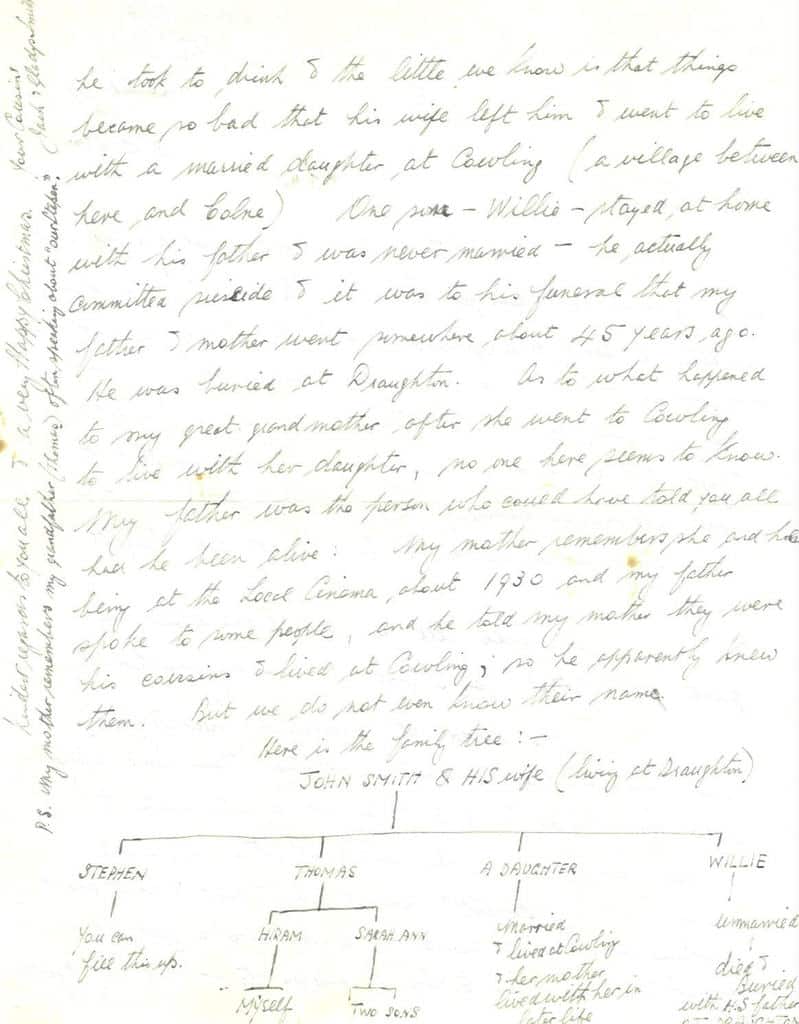 he took to drink & the little we know is that things
became so bad that his wife left him & went to live
with a married daughter at Cowling (a village between
here and Colne) One son - Willie - stayed at home
with his father & was never married - he actually
committed suicide & it was to his funeral that my
father & mother went somewhere about 45 years ago.
He was buried at Draughton. As to what happened
to my great grandmother after she went to Cowling
to live with her daughter, no one here seems to know.
My father was the person who could have told you all
had he been alive: My mother remembers she and he
being at the Local Cinema about 1930 and my father
spoke to some people, and he told my mother they were
his cousins & lived at Cowling; so he apparently knew
them. But we do not even know their name.
Here is the family tree:-
JOHN SMITH & HIS wife (living at Draughton)
STEPHEN THOMAS A DAUGHTER WILLIE
You can
fill this up.
HIRAM SARAH ANN
Myself TWO SONS
Married
& lived at Cowling
& her mother
lived with her in
later life
unmarried
died &
Buried
with HIS father
AT DRAUGHTON
Kindest regards to you all, & a very Happy Christmas. Your Cousins
Jack & Gladys Smith
P.S. My mother remembers my grandfather (Thomas) often speaking about "our Stephen".